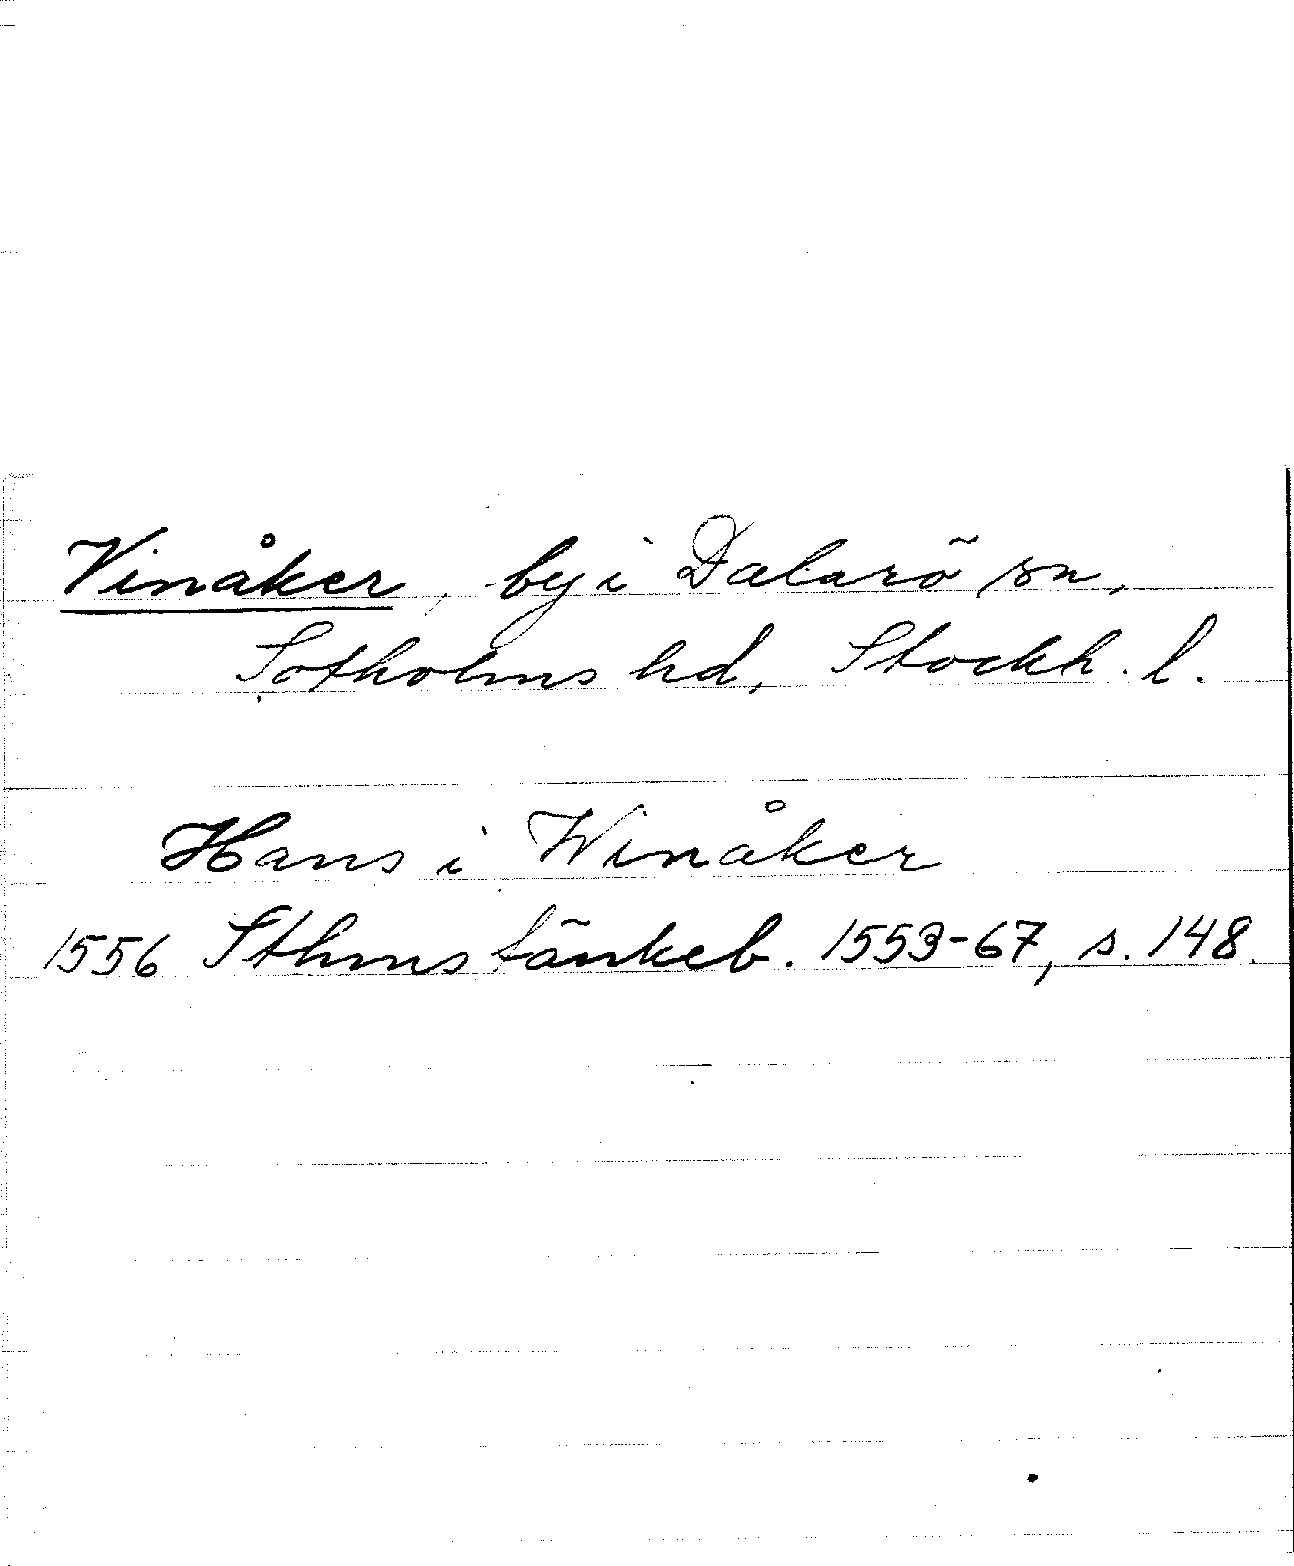 Vinåker, by i Dalarö sn,
Sotholms hd, Stockh. l.
Hans i Winåker
1556 Sthms tänkeb. 1553-67, s. 148.